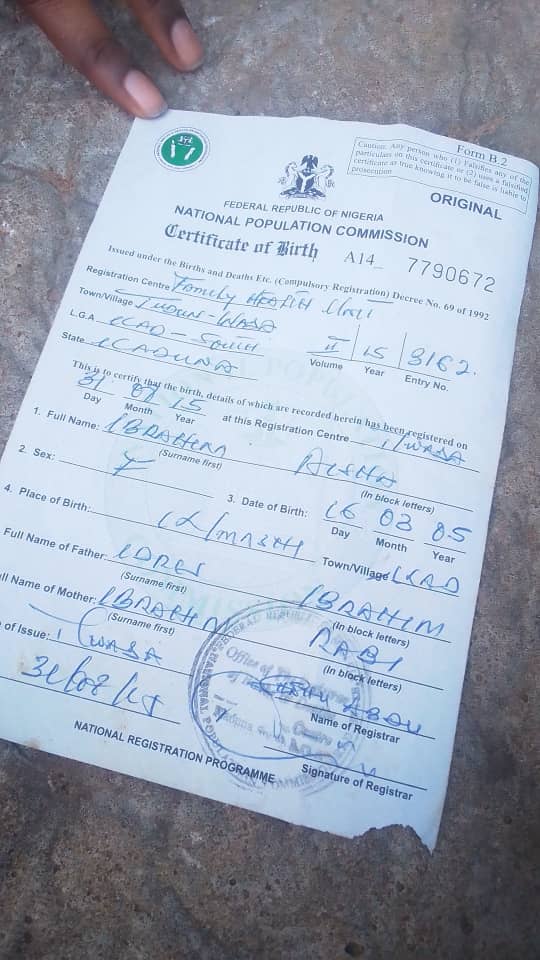 Form B 2
Caution: Any person who (1) Falsifies any of the
particulars on this certificate or (2) uses a falsified
certificate as true knowing it to be false is liable to
prosecution
ORIGINAL
FEDERAL REPUBLIC OF NIGERIA
NATIONAL POPULATION COMMISSION
Certificate of Birth
A14_ 7790672
Issued under the Births and Deaths Etc. (Compulsory Registration) Decree No. 69 of 1992
Registration Centre Family HEALTH Unit
Town/Village TUDUN-WADA
L.G.A KAD-South II 15 3162.
State KADUNA Volume Year Entry No.
This is to certify that the birth, details of which are recorded herein has been registered on
31 08 15 at this Registration Centre T/WADA
Day Month Year
1. Full Name: IBRAHIM AISHA
(Surname first) (In block letters)
2. Sex: F 3. Date of Birth: 16 03 05
Day Month Year
4. Place of Birth: Town/Village KAD
Full Name of Father: IDRIS IBRAHIM
(Surname first) (In block letters)
Full Name of Mother: IBRAHIM RABI
(Surname first) (In block letters)
of Issue: T/WADA
31/08/15 Name of Registrar
Signature of Registrar
NATIONAL REGISTRATION PROGRAMME